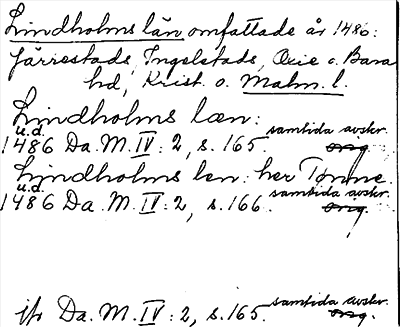 Lindholms län omfattade år 1486:
Järrestads, Ingelstads, Oxie o. Bara
hd, Krist. o. Malm. l.
Lindholms læn:
u.d.
1486 Da. M. IV: 2, s. 165. samtida avskr. orig.
Lindholms len: her Tønne.
u.d.
1486 Da. M. IV: 2, s. 166. samtida avskr. orig.
jfr Da. M. IV: 2, s. 165. samtida avskr. orig.